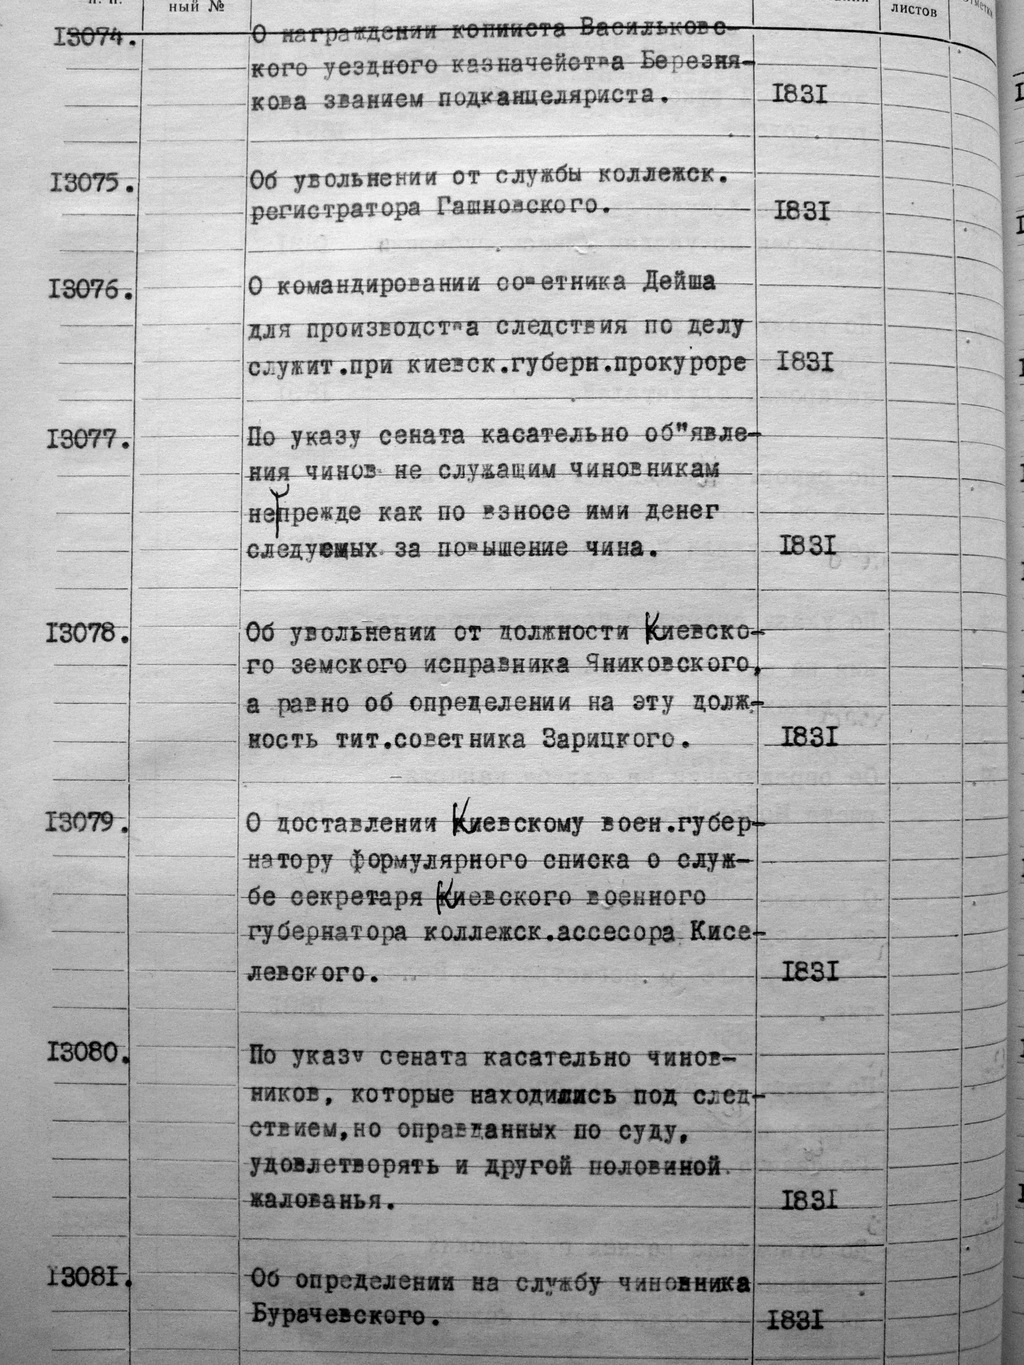 ный №
листов
13074.
О награждении копииста Васильковс-
кого уездного казначейства Березня-
кова званием подканцеляриста.
1831
13075.
Об увольнении от службы коллежск.
регистратора Гашновского.
1831
13076.
О командировании советника Дейша
для производства следствия по делу
служит.при киевск.губерн.прокуроре
1831
13077.
По указу сената касательно об"явле-
ния чинов не служащим чиновникам
непрежде как по взносе ими денег
следуемых за повышение чина.
1831
13078.
Об увольнении от должности Киевско-
го земского исправника Яниковского,
а равно об определении на эту долж-
ность тит.советника Зарицкого.
1831
13079.
О доставлении Киевскому воен.губер-
натору формулярного списка о служ-
бе секретаря Киевского военного
губернатора коллежск.ассесора Кисе-
левского.
1831
13080.
По указу сената касательно чинов-
ников, которые находились под след-
ствием,но оправданных по суду,
удовлетворять и другой половиной
жалованья.
1831
13081.
Об определении на службу чиновника
Бурачевского.
1831